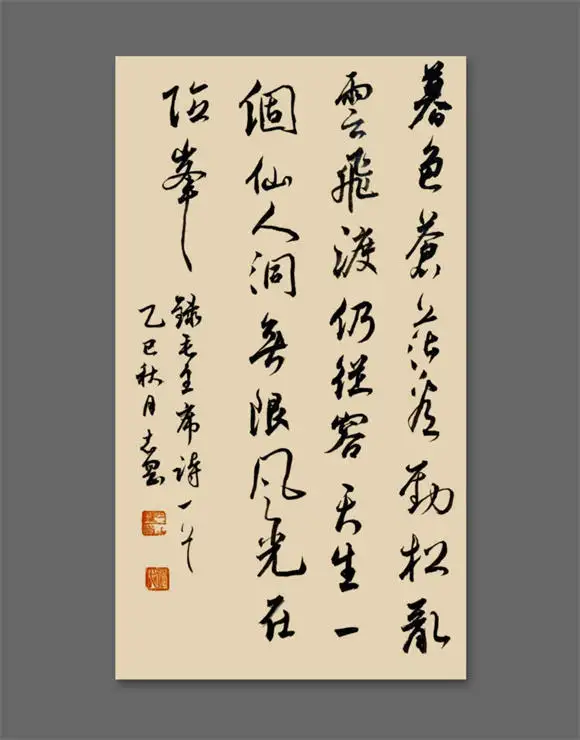 暮色蒼茫看勁松亂
雲飛渡仍從容天生一
個仙人洞無限风光在
险峯
錄毛主席詩一首
乙巳秋月